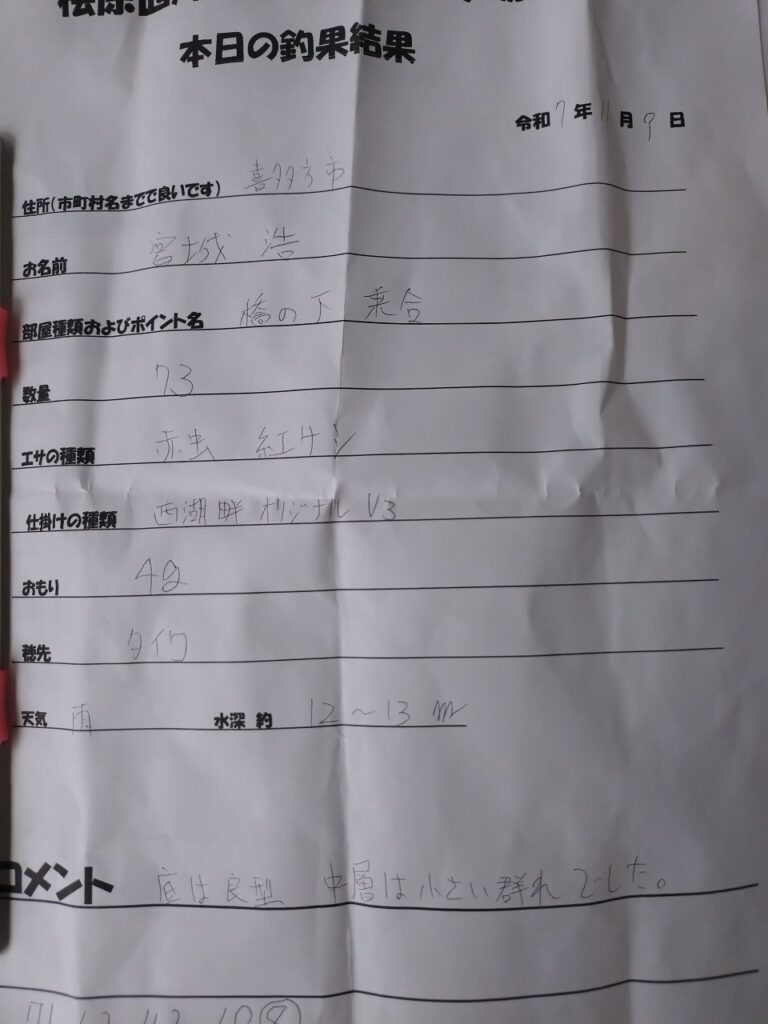 本日の釣果結果
令和 7 年 11 月 9 日
住所(市町村名までで良いです) 喜多方市
お名前 宮城 浩
部屋種類およびポイント名 橋の下 乗合
数量 73
エサの種類 赤虫 紅サシ
仕掛けの種類 西湖畔 オリジナル V3
おもり 4g
穂先 ダイワ
天気 雨 水深 約 12~13 m
コメント 底は良型 中層は小さい群れでした。